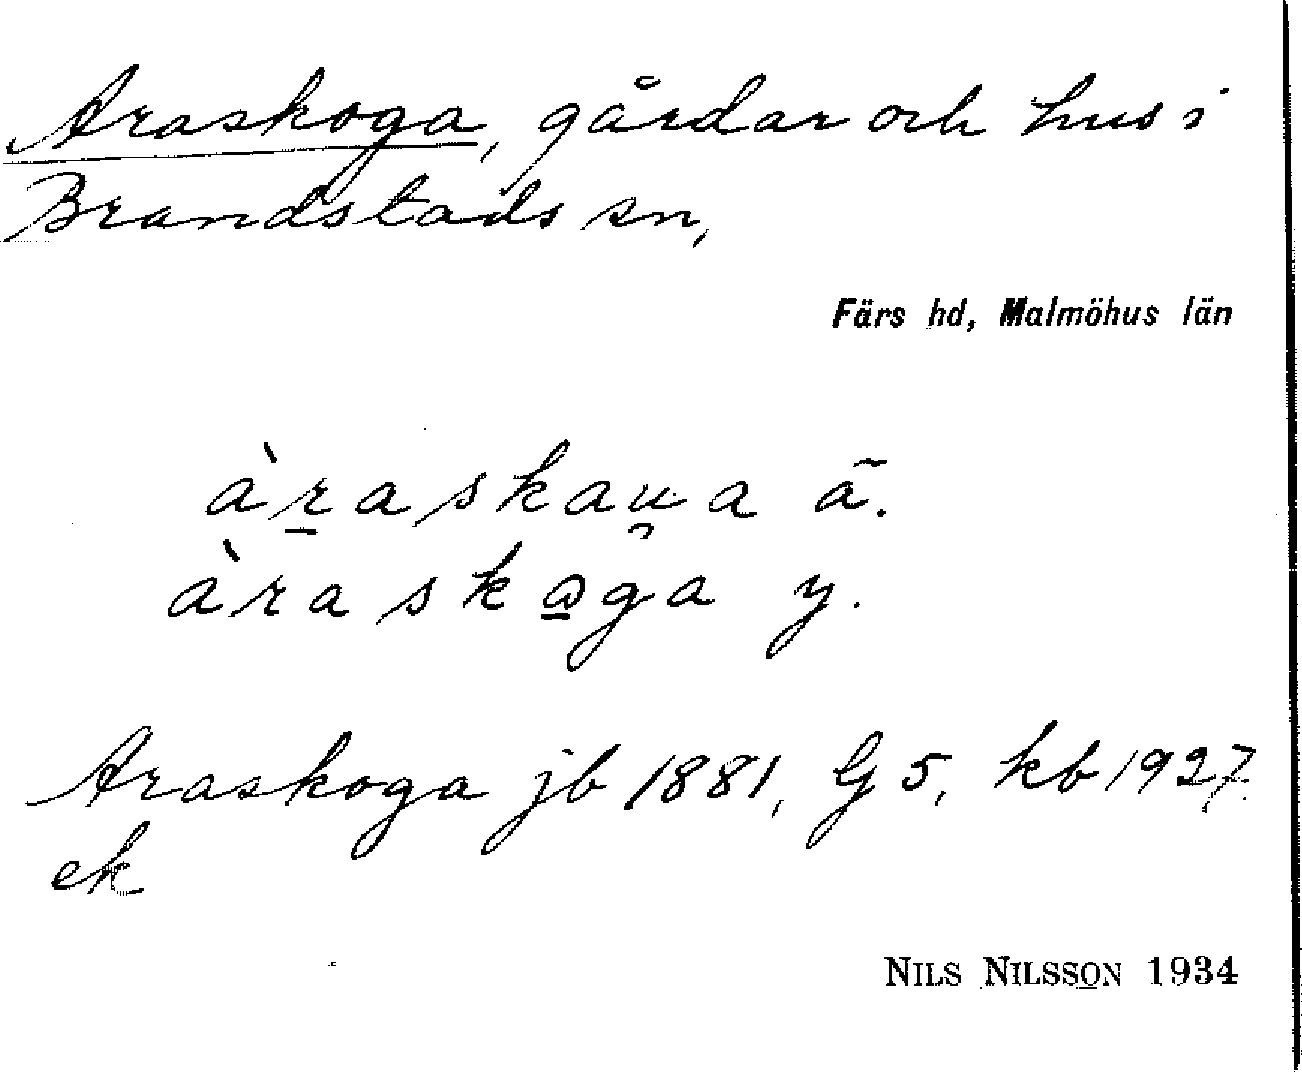 Araskoga, gårdar och hus i
Brandstads sn,
Färs hd, Malmöhus län
àr̠askau̯a ä.
àrasko̠ga y.
Araskoga jb 1881, G 5, kb 1927
ek
NILS NILSSON 1934